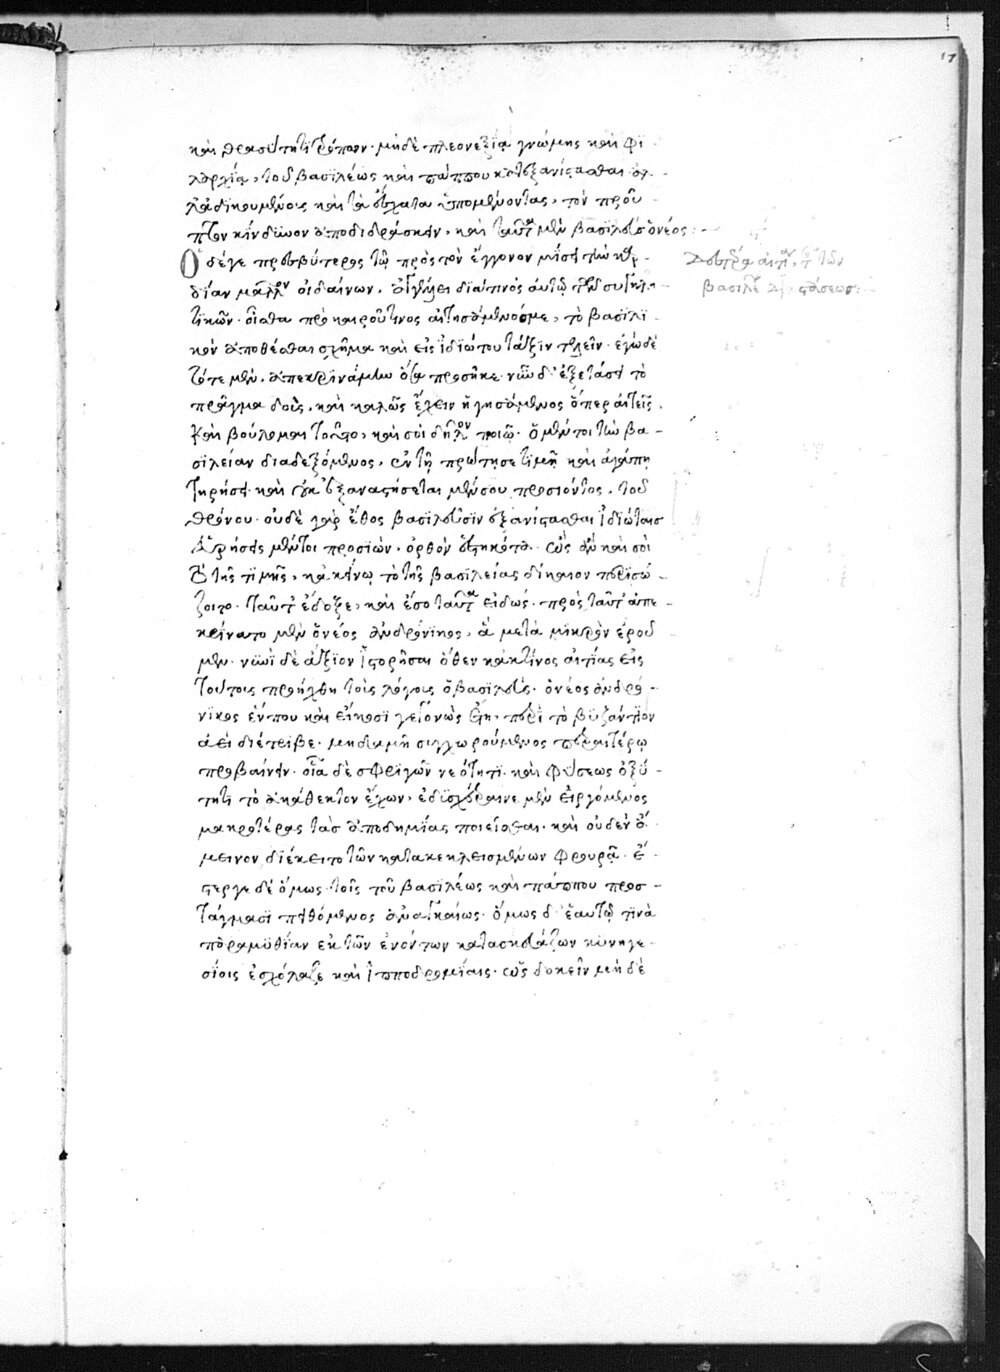 17
καὶ θρασύτητι τρόπων· μηδὲ πλεονεξία γνώμης καὶ φι
λαρχία, τοῦ βασιλέως καὶ πάππου κατεξανίστασθαι· ἀλ
λ' ἀδικουμένους καὶ τὰ ἔσχατα ὑπομένοντας, τὸν προῦ
πτον κίνδυνον ἀποδιδράσκειν, καὶ ταῦτα μὲν βασιλεὺς ὁ νέος:
Ὁ δέγε πρεσβύτερος τῷ πρὸς τὸν ἔγγονον μίσει τὴν καρ
δίαν μᾶλλον οἰδαίνων,
τικῶν· οἶσθα πρὸ καιροῦ τινος αἰτησάμενός με, τὸ βασιλι
κὸν ἀποθέσθαι σχῆμα καὶ εἰς ἰδιώτου τάξιν τελεῖν· ἐγὼ δὲ
τότε μὲν, ἀπεκρινάμην ἃ προσῆκε· νῦν δ' ἐξετάσει τὸ
πρᾶγμα δοὺς, καὶ καλῶς ἔχειν ἡγησάμενος ὅπερ αἰτεῖς,
καὶ βούλομαι τοῦτο, καὶ σοὶ δῆλον ποιῶ· ὁ μέντοι τὴν βα
σιλείαν διαδεξόμενος, ἐν τῇ πρώτῃ σε τιμῇ καὶ ἀγάπῃ
τηρήσει· καὶ οὐκ ἐξαναστήσεται μέν σου προσιόντος, τοῦ
θρόνου· οὐδὲ γὰρ ἔθος βασιλεῦσιν ἐξανίστασθαι ἰδιώταις
εὑρήσεις μέντοι προσιὼν, ὀρθὸν ἑστηκότα· ὡς ἂν καὶ σοὶ
τὸ τῆς τιμῆς, κἀκείνῳ τὸ τῆς βασιλείας δίκαιον περισώ
ζοιτο· ταῦτ' ἔδοξε, καὶ ἔσο ταῦτα εἰδώς· πρὸς ταῦτ' ἀπε
κρίνατο μὲν ὁ νέος ἀνδρόνικος, ἃ μετὰ μικρὸν ἐροῦ
μεν· νυνὶ δὲ ἄξιον ἱστορῆσαι ὅθεν κἀκ τίνος αἰτίας εἰς
τούτους προήχθη τοὺς λόγους ὁ βασιλεύς· ὁ νέος ἀνδρό
νικος ἕν που καὶ εἴκοσι γεγονὼς ἔτη, περὶ τὸ βυζάντιον
ἀεὶ διέτριβε· μηδαμῆ συγχωρούμενος περαιτέρω
προβαίνειν· οἷα δὲ σφριγῶν νεότητι καὶ φύσεως ὀξύ
τητι τὸ ἀκάθεκτον ἔχων, ἐδυσχέραινε μὲν εἰργόμενος
μακροτέρας τὰς ἀποδημίας ποιεῖσθαι· καὶ οὐδὲν ἄ
μεινον διέκειτο τῶν κατακεκλεισμένων φρουρᾷ· ἔ
στεργε δὲ ὅμως τοῖς τοῦ βασιλέως καὶ πάππου προσ
τάγμασι πειθόμενος ἀναγκαίως· ὅμως δ' ἑαυτῷ τινὰ
παραμυθίαν ἐκ τῶν ἐνόντων κατασκευάζων κυνηγε
σίοις ἐσχόλαζε καὶ ἱπποδρομίαις· ὡς δοκεῖν μηδὲ